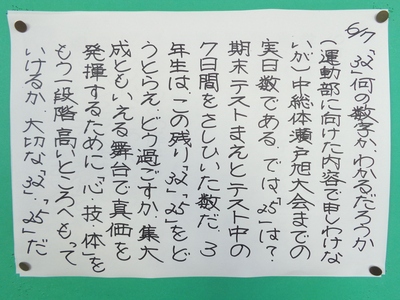 6/7
「32」何の数字かわかるだろうか
(運動部に向けた内容で申しわけな
いが)中総体瀬戸旭大会までの
実日数である。では「25」は?
期末テストまえとテスト中の
7日間をさしひいた数だ。3
年生は、この残り「32」「25」をど
うとらえ、どう過ごすか。集大
成ともいえる舞台で真価を
発揮するために「心・技・体」を
もう一段階高いところへもって
いけるか、大切な「32」・「25」だ